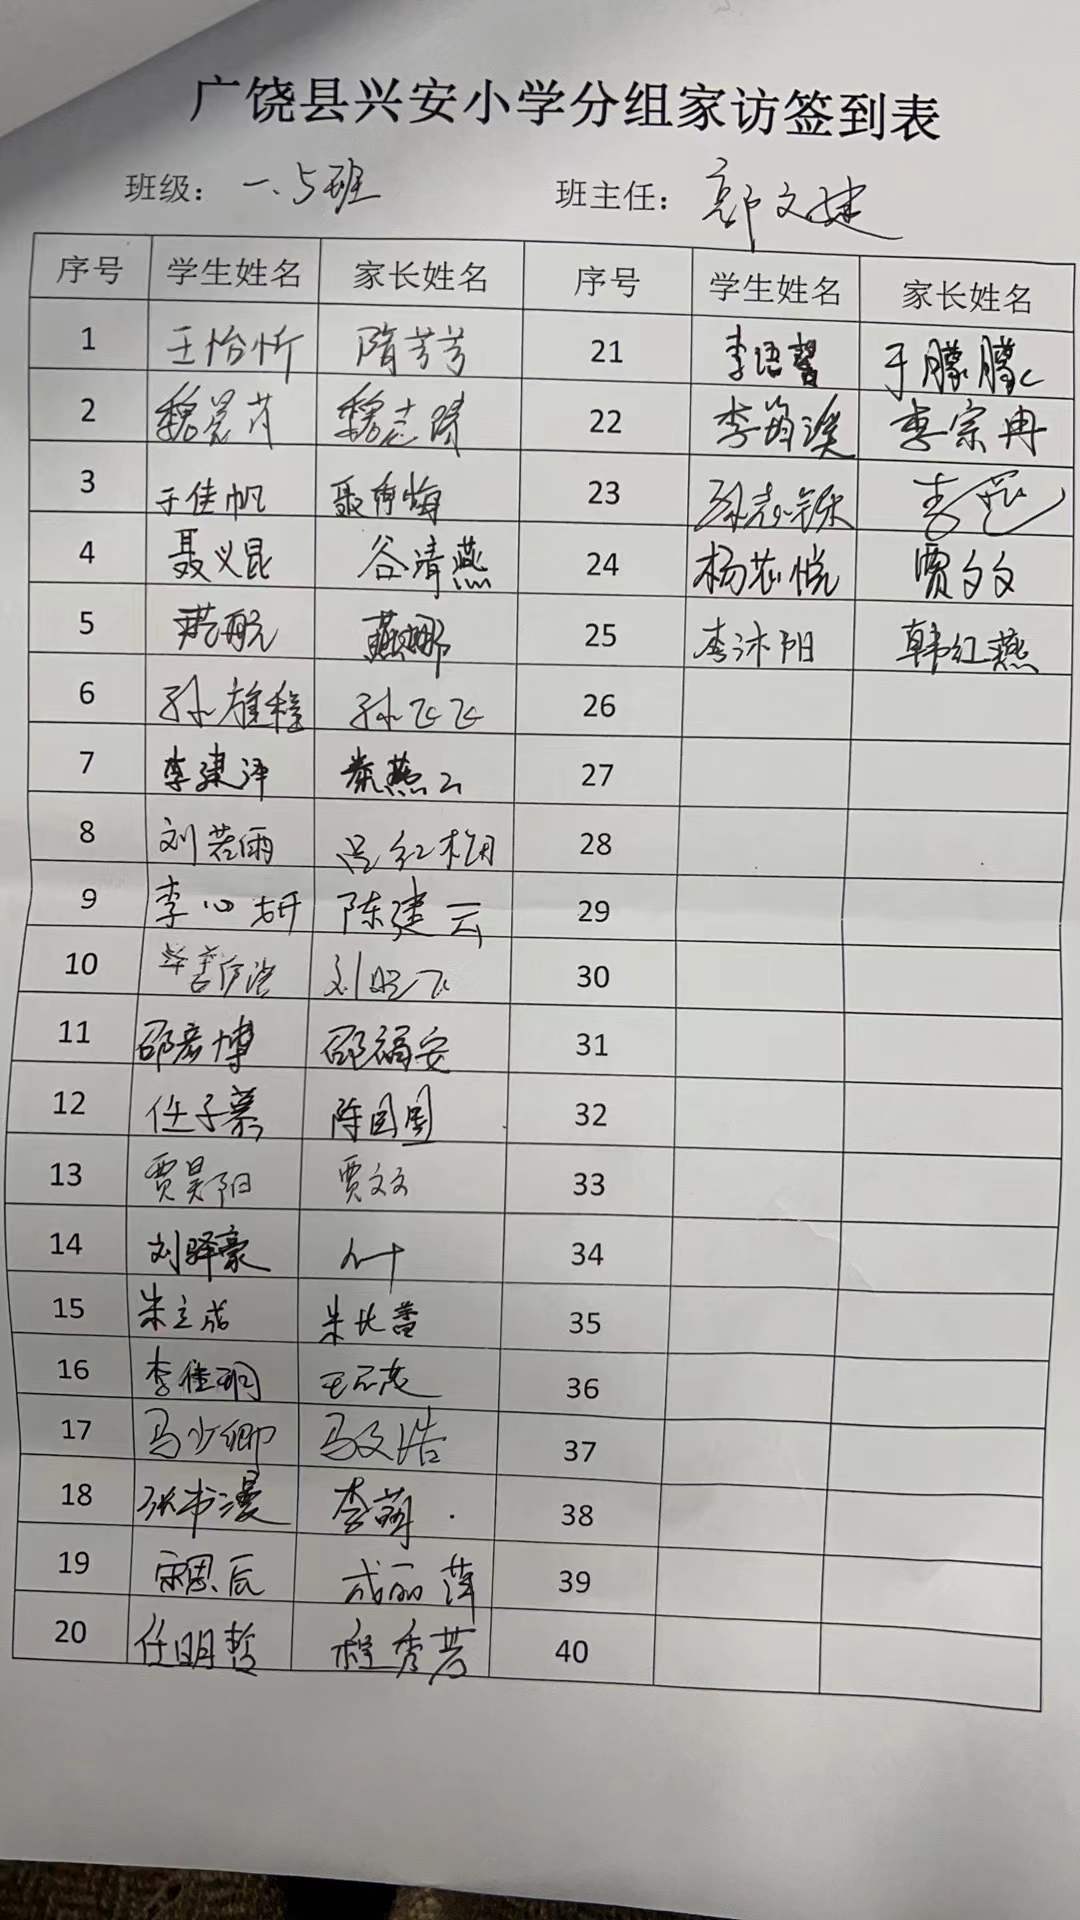 广饶县兴安小学分组家访签到表
班级: 一.5班 班主任: 郭文建
序号 学生姓名 家长姓名 序号 学生姓名 家长姓名
1 王怡忻 隋芳芳 21 李语馨 于朦朦
2 魏 魏志 22 李筠溪 李宗冉
3 于佳帆 聂 23 孙志铄 李
4 聂义昆 谷清燕 24 杨芯悦 贾文文
5 航 燕娜 25 李沐阳 韩红燕
6 孙雄程 孙飞飞 26
7 李建泽 燕云 27
8 刘若雨 吕红梅 28
9 李心妍 陈建云 29
10 刘 飞 30
11 邵彦博 邵福安 31
12 任子慕 陈园园 32
13 贾昊阳 贾文文 33
14 刘驿豪 34
15 朱立成 朱长蕾 35
16 李佳玥 王 36
17 马少卿 马文浩 37
18 张书漫 李萌 38
19 宋恩辰 成丽萍 39
20 任明哲 程秀芳 40